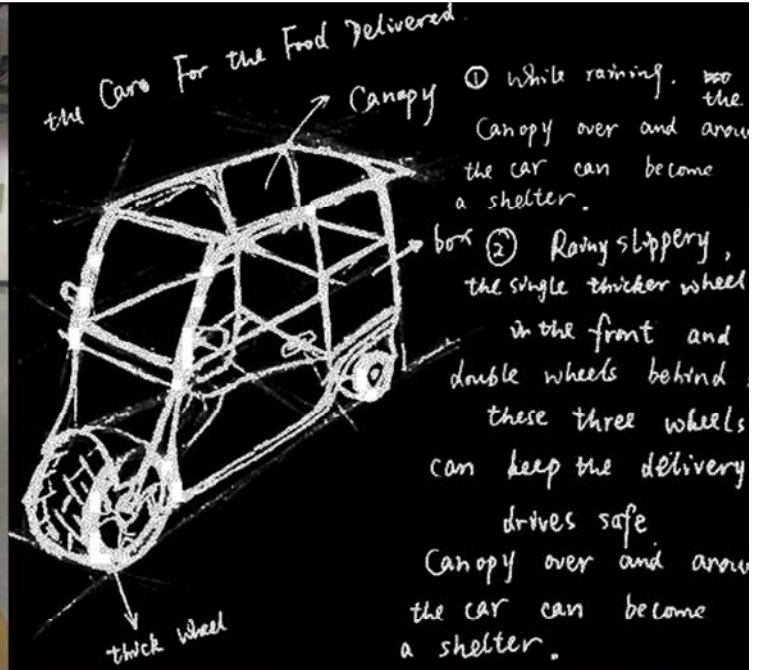 the Cars For the Food Delivered.
Canopy
① while raining. the
Canopy over and arou
the car can become
a shelter.
box
② Rainy slippery,
the single thicker wheel
in the front and
double wheels behind
these three wheels
can keep the delivery
drives safe
Canopy over and arou
the car can become
a shelter.
thick wheel